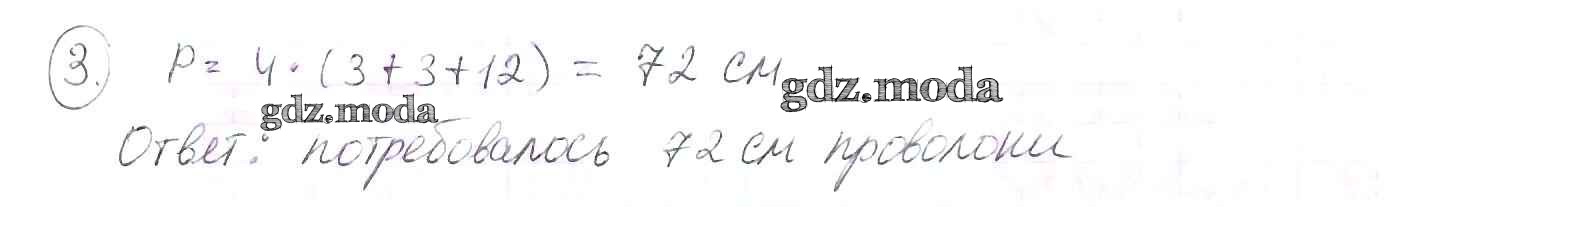 3. P = 4 · (3 + 3 + 12) = 72 см gdz.moda
gdz.moda
Ответ: потребовалось 72 см проволоки